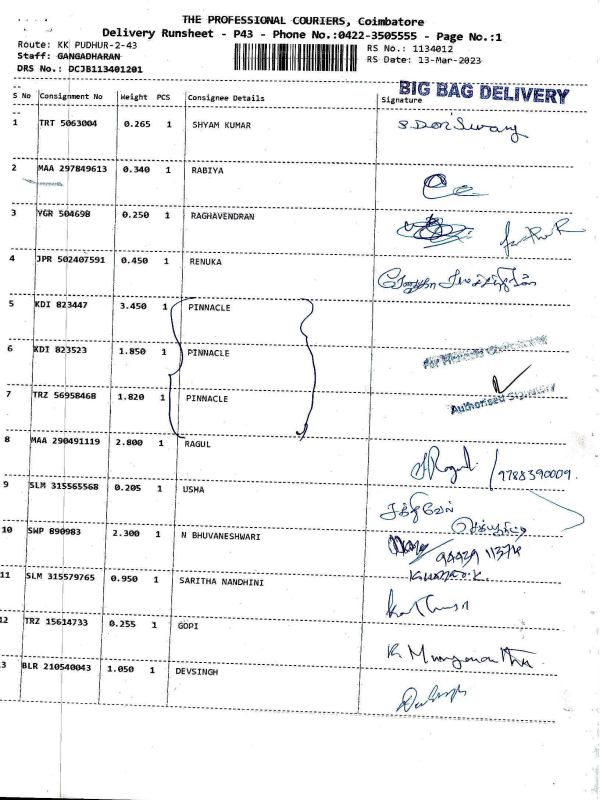 THE PROFESSIONAL COURIERS, Coimbatore
Delivery Runsheet - P43 - Phone No.:0422-3505555 - Page No.:1
Route: KK PUDHUR-2-43
RS No.: 1134012
Staff: GANGADHARAN
RS Date: 13-Mar-2023
DRS No.: DCJB113401201
BIG BAG DELIVERY
S No Consignment No Weight PCS Consignee Details Signature
1 TRT 5063004 0.265 1 SHYAM KUMAR
2 MAA 297849613 0.340 1 RABIYA
3 YGR 504698 0.250 1 RAGHAVENDRAN
4 JPR 502407591 0.450 1 RENUKA
5 KDI 823447 3.450 1 PINNACLE
6 KDI 823523 1.850 1 PINNACLE
7 TRZ 56958468 1.820 1 PINNACLE
Authorised Signatory
8 MAA 290491119 2.800 1 RAGUL Ragul /9788390009.
9 SLM 315565568 0.205 1 USHA
10 SWP 890983 2.300 1 N BHUVANESHWARI
11 SLM 315579765 0.950 1 SARITHA NANDHINI
12 TRZ 15614733 0.255 1 GOPI
3 BLR 210540043 1.050 1 DEVSINGH